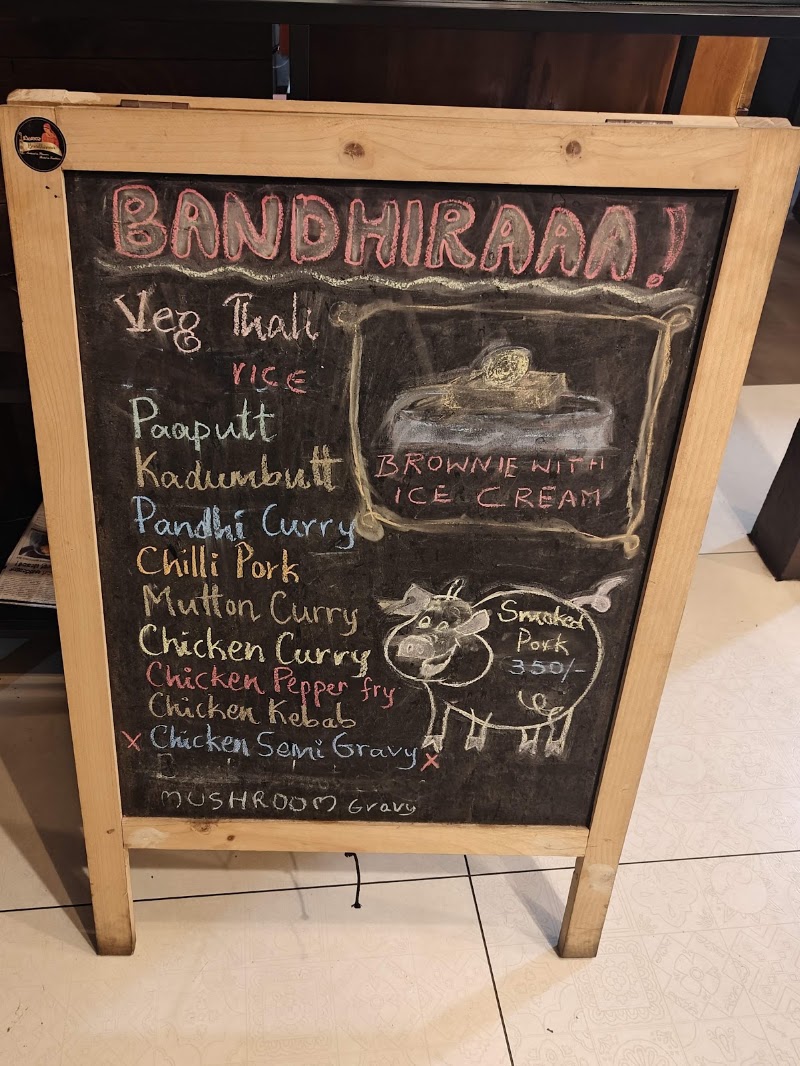 BANDHIRAAA!
Veg Thali
rICE
Paaputt
Kadumbutt
Pandhi Curry
Chilli Pork
Mutton Curry
Chicken Curry
Chicken Pepper fry
Chicken Kebab
x Chicken Semi Gravy x
MUSHROOM Gravy
BROWNIE WITH
ICE CREAM
Smoked
Pork
350/-